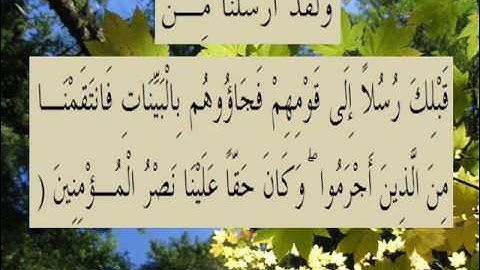 وَلَقَدْ أَرْسَلْنَا مِــنْ
قَبْلِكَ رُسُلاً إِلَى قَوْمِهِمْ فَجَاؤُوهُم بِالْبَيِّنَاتِ فَانتَقَمْنَــا
مِنَ الَّذِينَ أَجْرَمُوا ۖ وَكَانَ حَقّاً عَلَيْنَا نَصْرُ الْمُــؤْمِنِينَ (